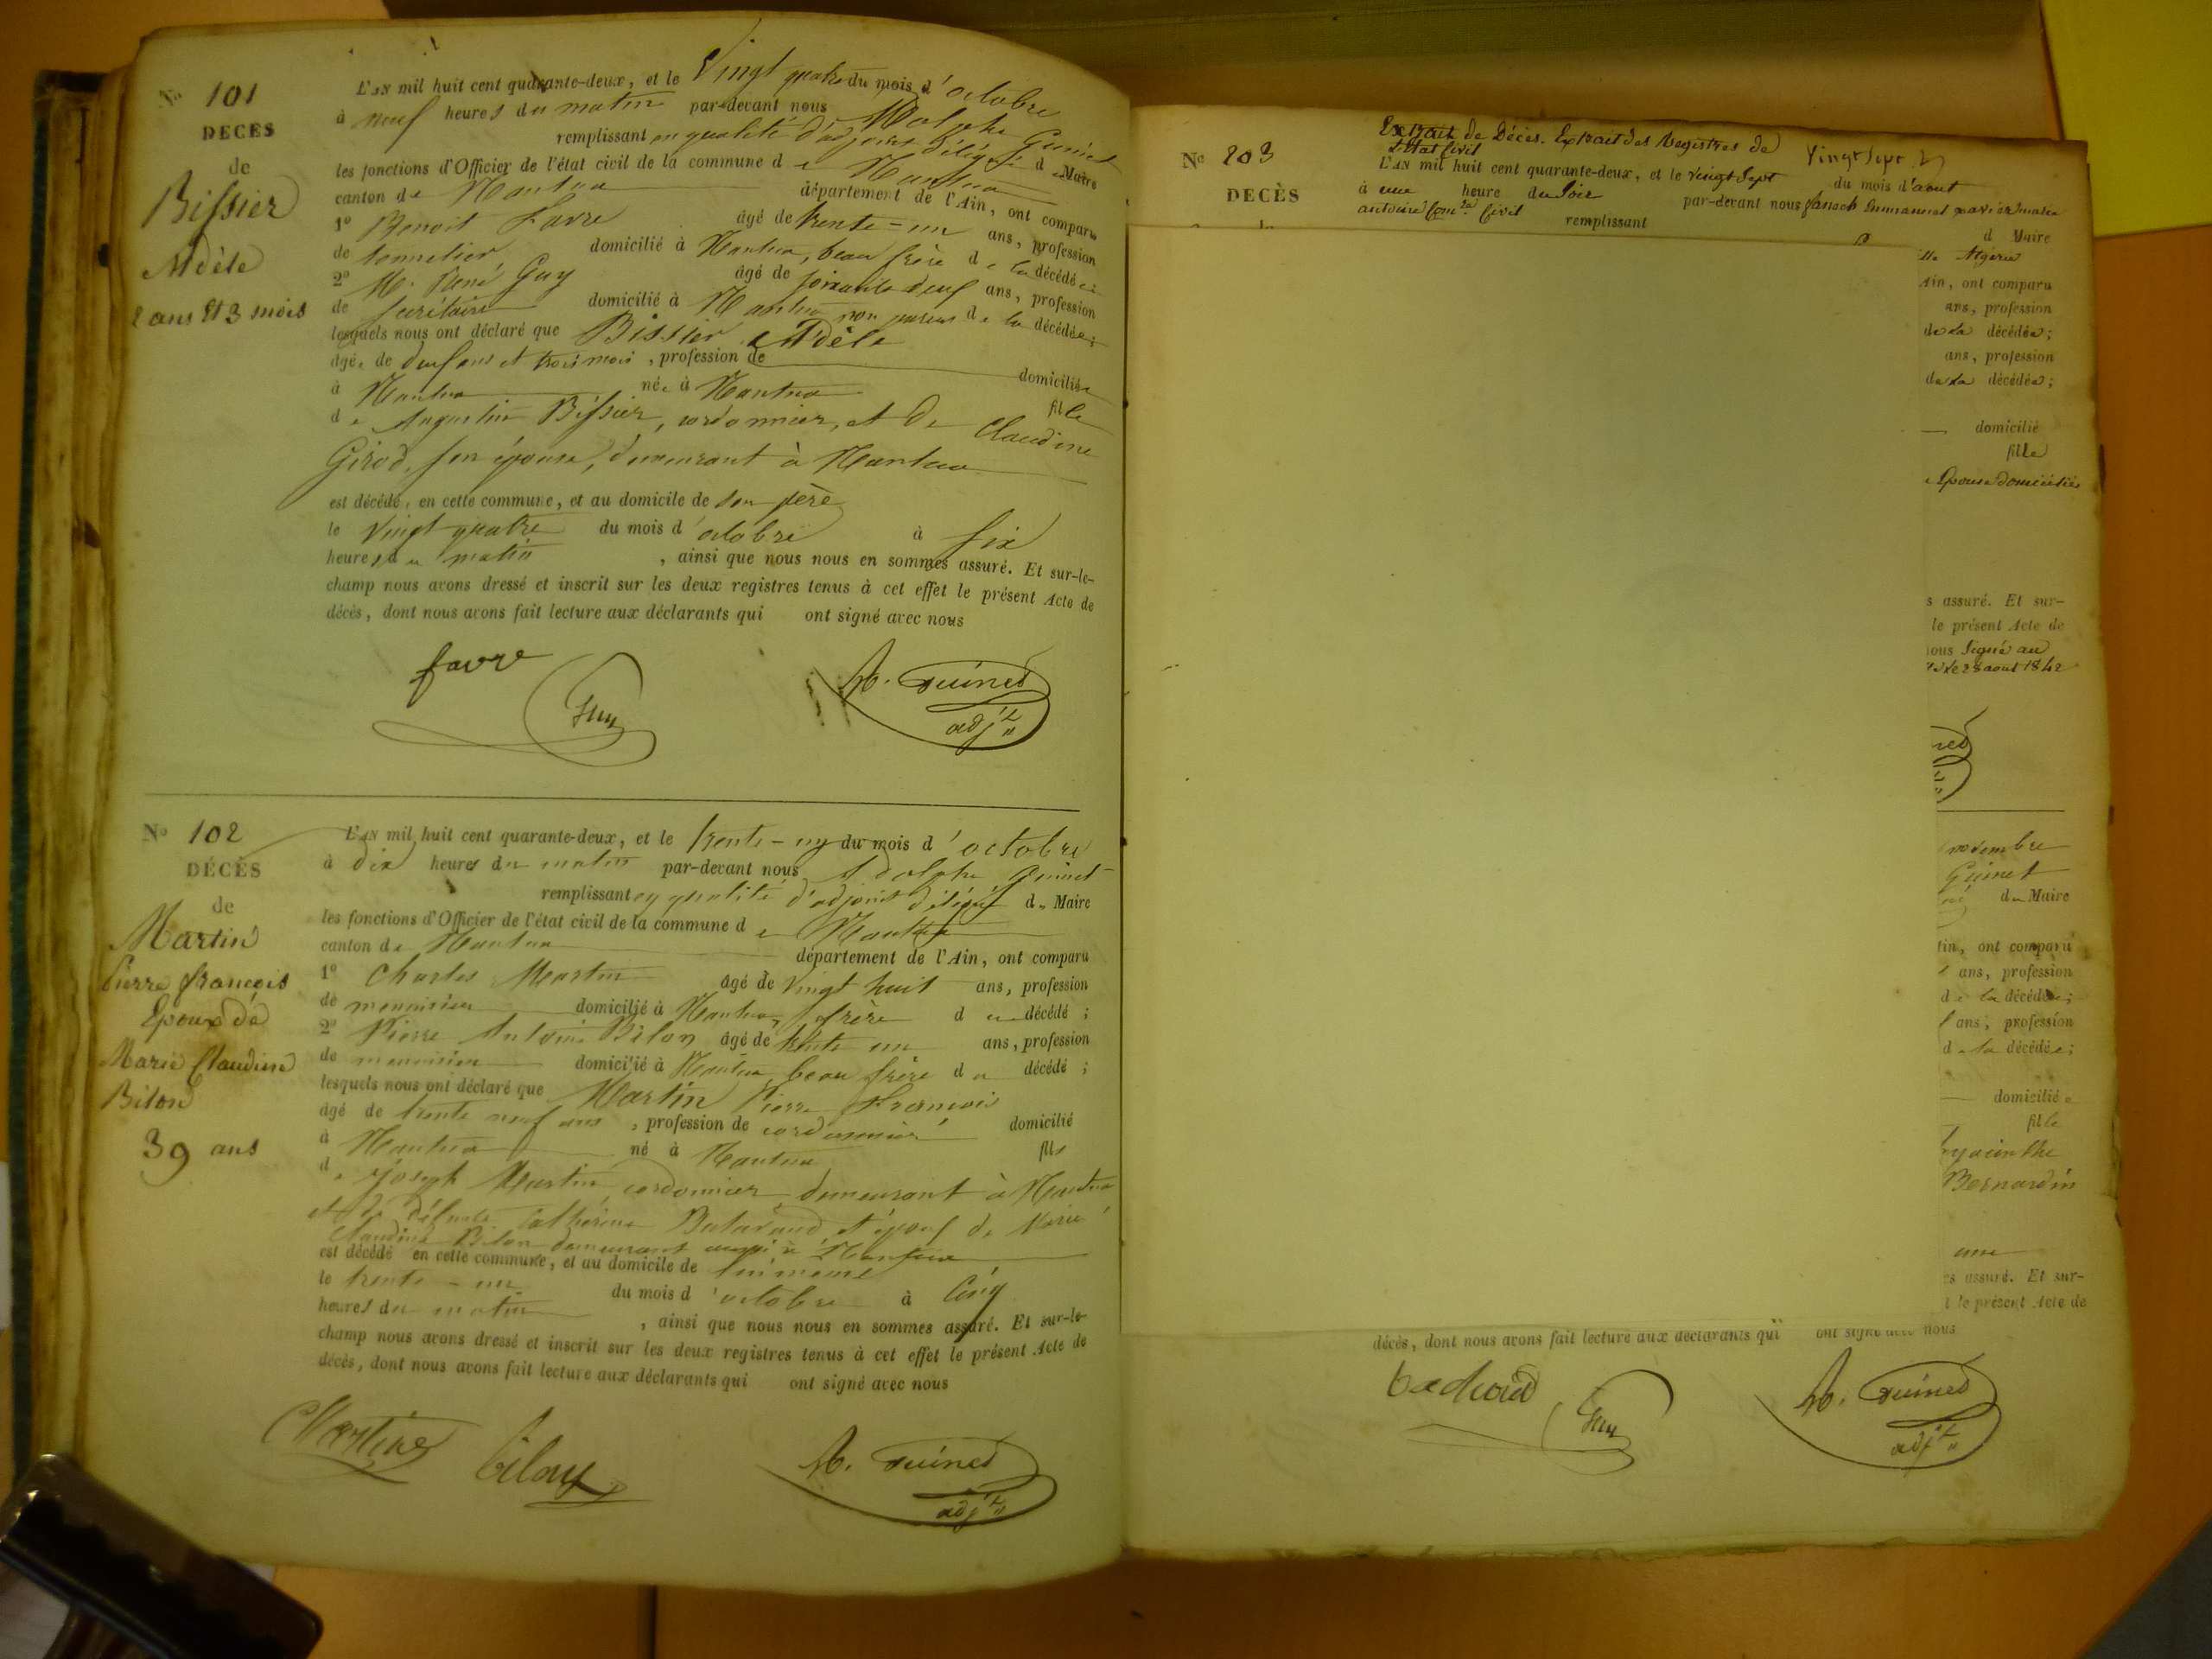 No 101
DÉCÈS
de
Bissier
Adèle
2 ans et 3 mois
L'AN mil huit cent quarante-deux, et le Vingt quatre du mois d'octobre
à neuf heures du matin par-devant nous Adolphe Guinet
remplissant en qualité d'adjoint délégué du Maire
les fonctions d'Officier de l'état civil de la commune de Nantua
canton de Nantua département de l'Ain, ont comparu
1o Benoit Favre âgé de trente-un ans, profession
de tonnelier domicilié à Nantua, beau frère de la décédée;
2o M. René Guy âgé de soixante deux ans, profession
de secrétaire domicilié à Nantua non parent de la décédée;
lesquels nous ont déclaré que Bissier Adèle
âgée de deux ans et trois mois, profession de domiciliée
à Nantua née à Nantua fille
de Augustin Bissier, cordonnier, et de Claudine
Girod, son épouse, demeurant à Nantua
est décédée, en cette commune, et au domicile de son père
le vingt quatre du mois d'octobre à six
heures du matin, ainsi que nous nous en sommes assuré. Et sur-le-
champ nous avons dressé et inscrit sur les deux registres tenus à cet effet le présent Acte de
décès, dont nous avons fait lecture aux déclarants qui ont signé avec nous
favre
Guy
A. Guinet
adjt
No 102
DÉCÈS
de
Martin
Pierre françois
Epoux de
Marie Claudine
Bilon
39 ans
L'AN mil huit cent quarante-deux, et le trente-un du mois d'octobre
à dix heures du matin par-devant nous Adolphe Guinet
remplissant en qualité d'adjoint délégué du Maire
les fonctions d'Officier de l'état civil de la commune de Nantua
canton de Nantua département de l'Ain, ont comparu
1o Charles Martin âgé de vingt huit ans, profession
de menuisier domicilié à Nantua, frère du décédé;
2o Pierre Antoine Bilon âgé de trente un ans, profession
de menuisier domicilié à Nantua beau frère du décédé;
lesquels nous ont déclaré que Martin Pierre François
âgé de trente neuf ans, profession de cordonnier domicilié
à Nantua né à Nantua fils
de Joseph Martin, cordonnier demeurant à Nantua
et de défunte Catherine et époux de Marie
Claudine Bilon demeurant aussi à Nantua
est décédé en cette commune, et au domicile de lui même
le trente-un du mois d'octobre à cinq
heures du matin, ainsi que nous nous en sommes assuré. Et sur-le-
champ nous avons dressé et inscrit sur les deux registres tenus à cet effet le présent Acte de
décès, dont nous avons fait lecture aux déclarants qui ont signé avec nous
CMartin
bilon
A. Guinet
adjt
Extrait de Décès. Extrait des Registres de
L'état Civil
No 103
DÉCÈS
L'AN mil huit cent quarante-deux, et le vingt sept du mois d'aout
à une heure du soir par-devant nous Emmanuel xavier
antoine Comre Civil remplissant
d Maire
Algérie
Ain, ont comparu
ans, profession
de la décédée;
ans, profession
de la décédée;
domicilié
fille
Epouse domiciliée
s assuré. Et sur-
le présent Acte de
nous Signé au
le 28 aout 1842
novembre
Guinet
du Maire
Ain, ont comparu
ans, profession
de la décédée;
ans, profession
de la décédée;
domiciliée
fille
hyacinthe
Bernardin
une
es assuré. Et sur-
t le présent Acte de
décès, dont nous avons fait lecture aux déclarants qui ont signé avec nous
Guy
A. Guinet
adjt